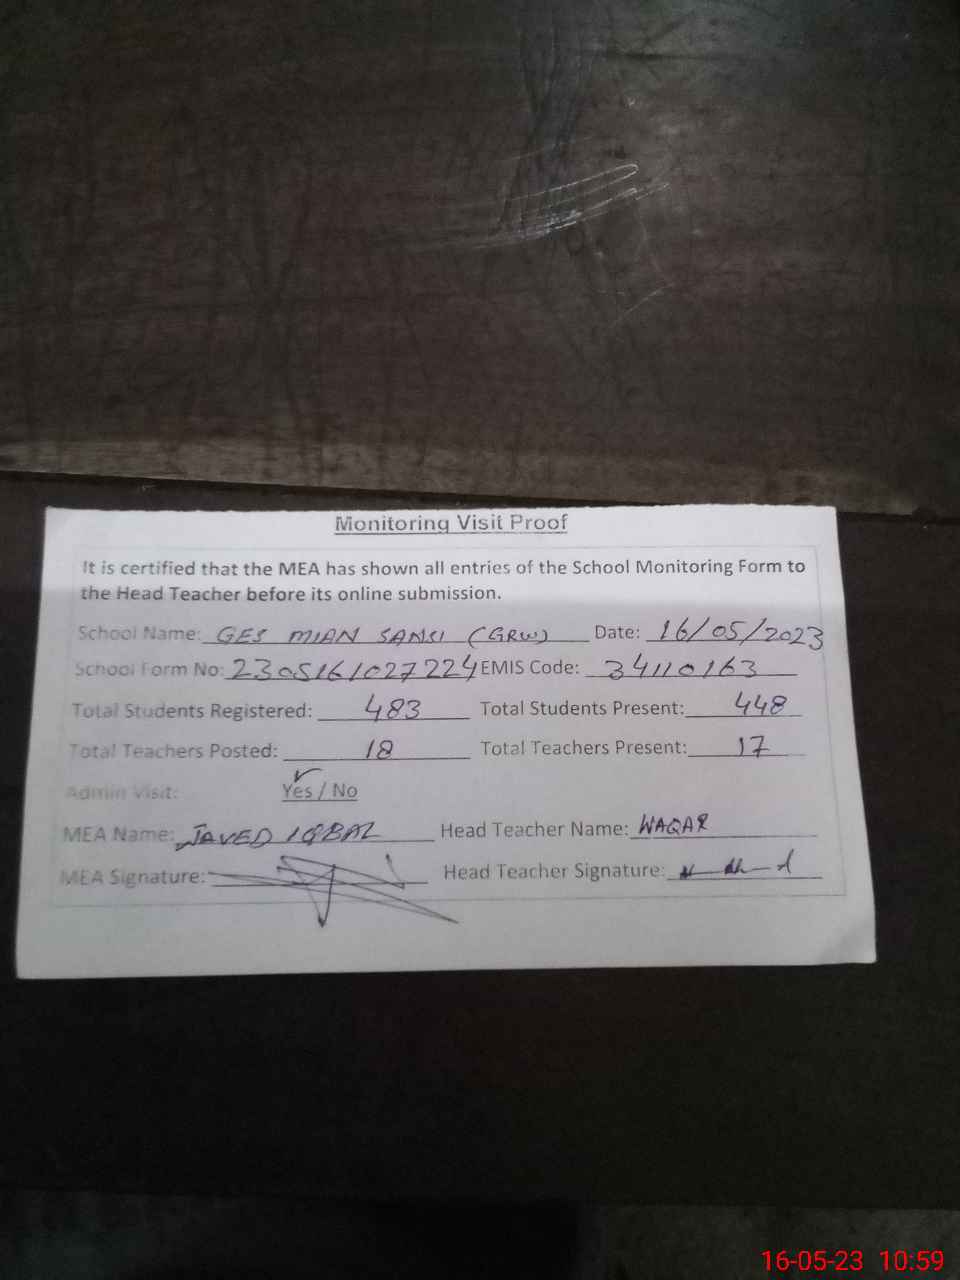 Monitoring Visit Proof
It is certified that the MEA has shown all entries of the School Monitoring Form to
the Head Teacher before its online submission.
School Name: GES MIAN SANSI (GRW) Date: 16/05/2023
School Form No: 2305161027224 EMIS Code: 34110163
Total Students Registered: 483 Total Students Present: 448
Total Teachers Posted: 18 Total Teachers Present: 17
Admin Visit: Yes / No
MEA Name: JAVED IQBAL Head Teacher Name: WAQAR
MEA Signature: Head Teacher Signature:
16-05-23 10:59